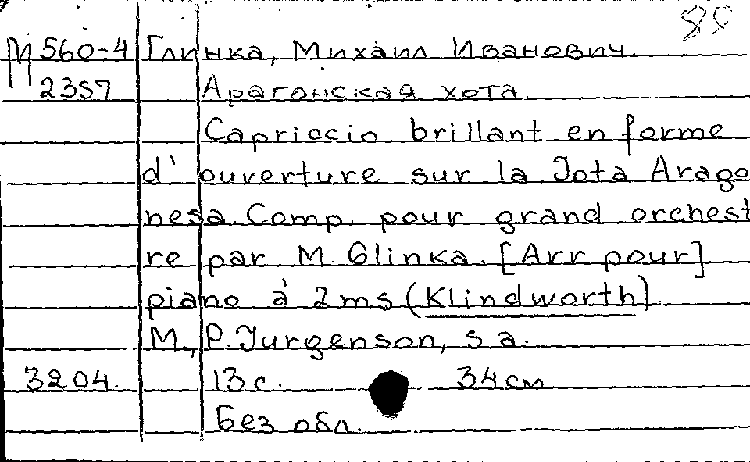 80
М 560-4 Глинка, Михаил Иванович.
2357 Арагонская хота
Capriccio brillant en forme
d'ouverture sur la Jota Arago
nesa. Comp. pour grand orchest
re par M. Glinka. [Arr. pour]
piano à 2 ms (Klindworth)
M., P. Jurgenson, s. a.
3204. 13 с. 34 см
Без обл.